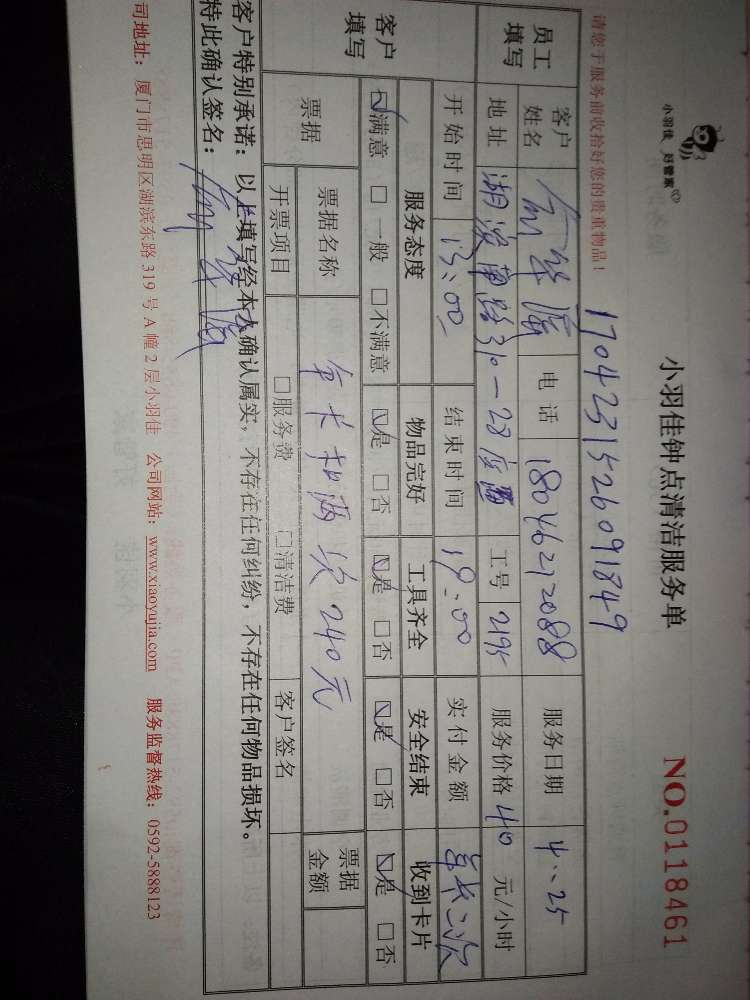 小羽佳 好管家
小羽佳钟点清洁服务单
NO.0118461
请您于服务前收拾好您的贵重物品！
170423152609 1849
员工填写
客户姓名
电话 18046212088
服务日期 4、25
地址 湖滨南路310-28
工号 2195
服务价格 40 元/小时
开始时间
结束时间 19:00
实付金额
客户填写
服务态度 物品完好 工具齐全 安全结束 收到卡片
☑满意 □一般 □不满意 ☑是 □否 ☑是 □否 ☑是 □否 ☑是 □否
票据
票据名称
240元
票据金额
开票项目 □服务费 □清洁费 客户签名
客户特别承诺：以上填写经本人确认属实，不存在任何纠纷，不存在任何物品损坏。
特此确认签名：
司地址：厦门市思明区湖滨东路 319 号 A 幢 2 层小羽佳 公司网站：www.xiaoyujia.com 服务监督热线：0592-5888123